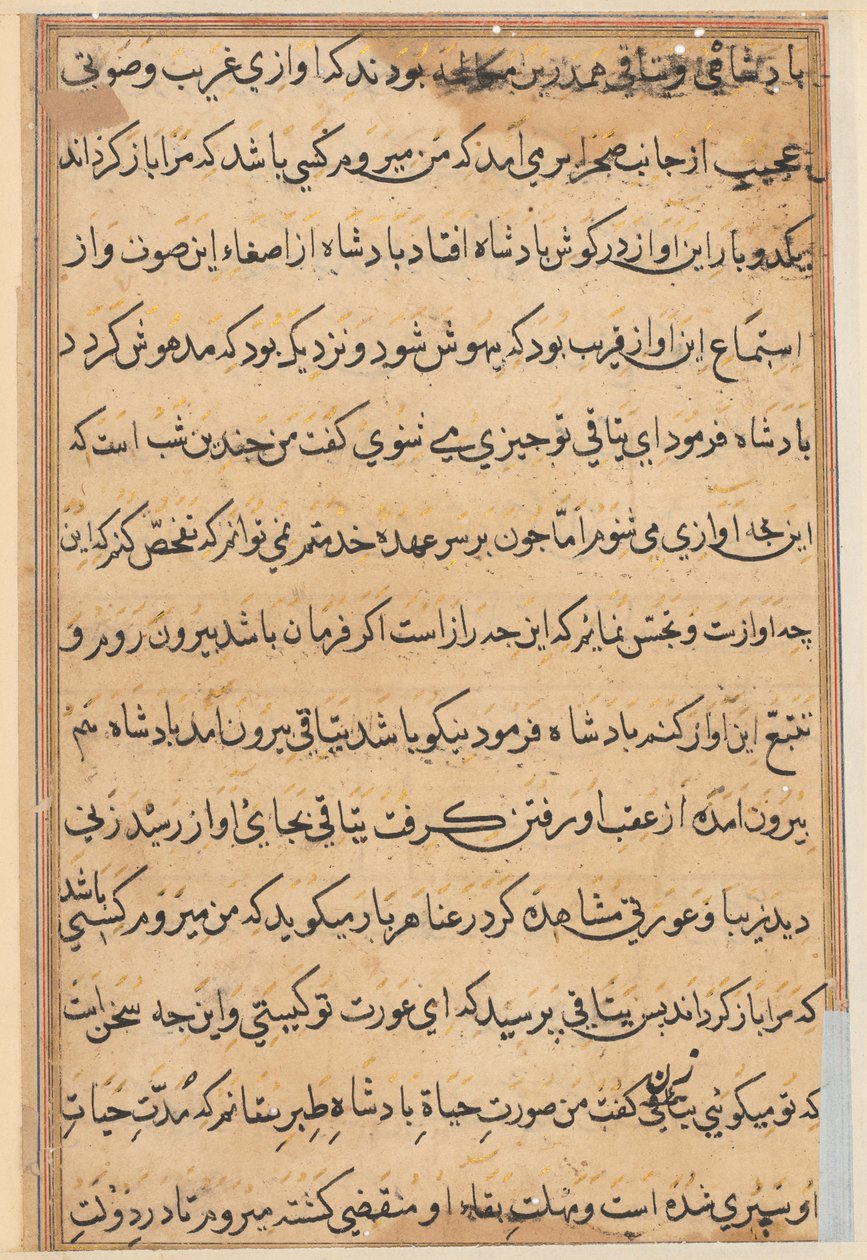 بادشاهی و یتاقی همدرین مکالمه بودند که اوازی غریب و صوتی
عجیب از جانب صحرا بر می امد که من میروم کسی باشد که مرا باز کرداند
یکدو بار این اواز در کوش بادشاه افتاد بادشاه از اصغاءِ این صوت و از
استماع این اواز قریب بود که بیهوش شود و نزدیک بود که مدهوش کردد
بادشاه فرمود ای یتاقی تو جیزی می شنوی کفت من جندین شب است که
این جه اوازی می شنوم امّا جون بر سر عهده خدمتم نمی توانم که تفحّص کنم که این
چه اوازست و تجسّس نمایم که این جه رازاست اکر فرمان باشد بیرون روم و
تتبعّ این اواز کنم بادشاه فرمود نیکو باشد یتاقی بیرون امد بادشاه هم
بیرون امده از عقب او رفتن کرفت یتاقی بجایِ اواز رسید زنی
دید زیبا و عورتی مشاهده کرد رعنا هر بار میکوید که من میروم کسی باشد
که مرا باز کرداند بس یتاقی پرسید که ای عورت تو کیستی و این جه سخن است
که تو میکویی زن کفت من صورتِ حیاةِ بادشاهِ طبرستانم که مُدّتِ حیاتِ
او سپری شده است و مهلتِ بقاء او منقضی کشته میروم تا در دولتِ